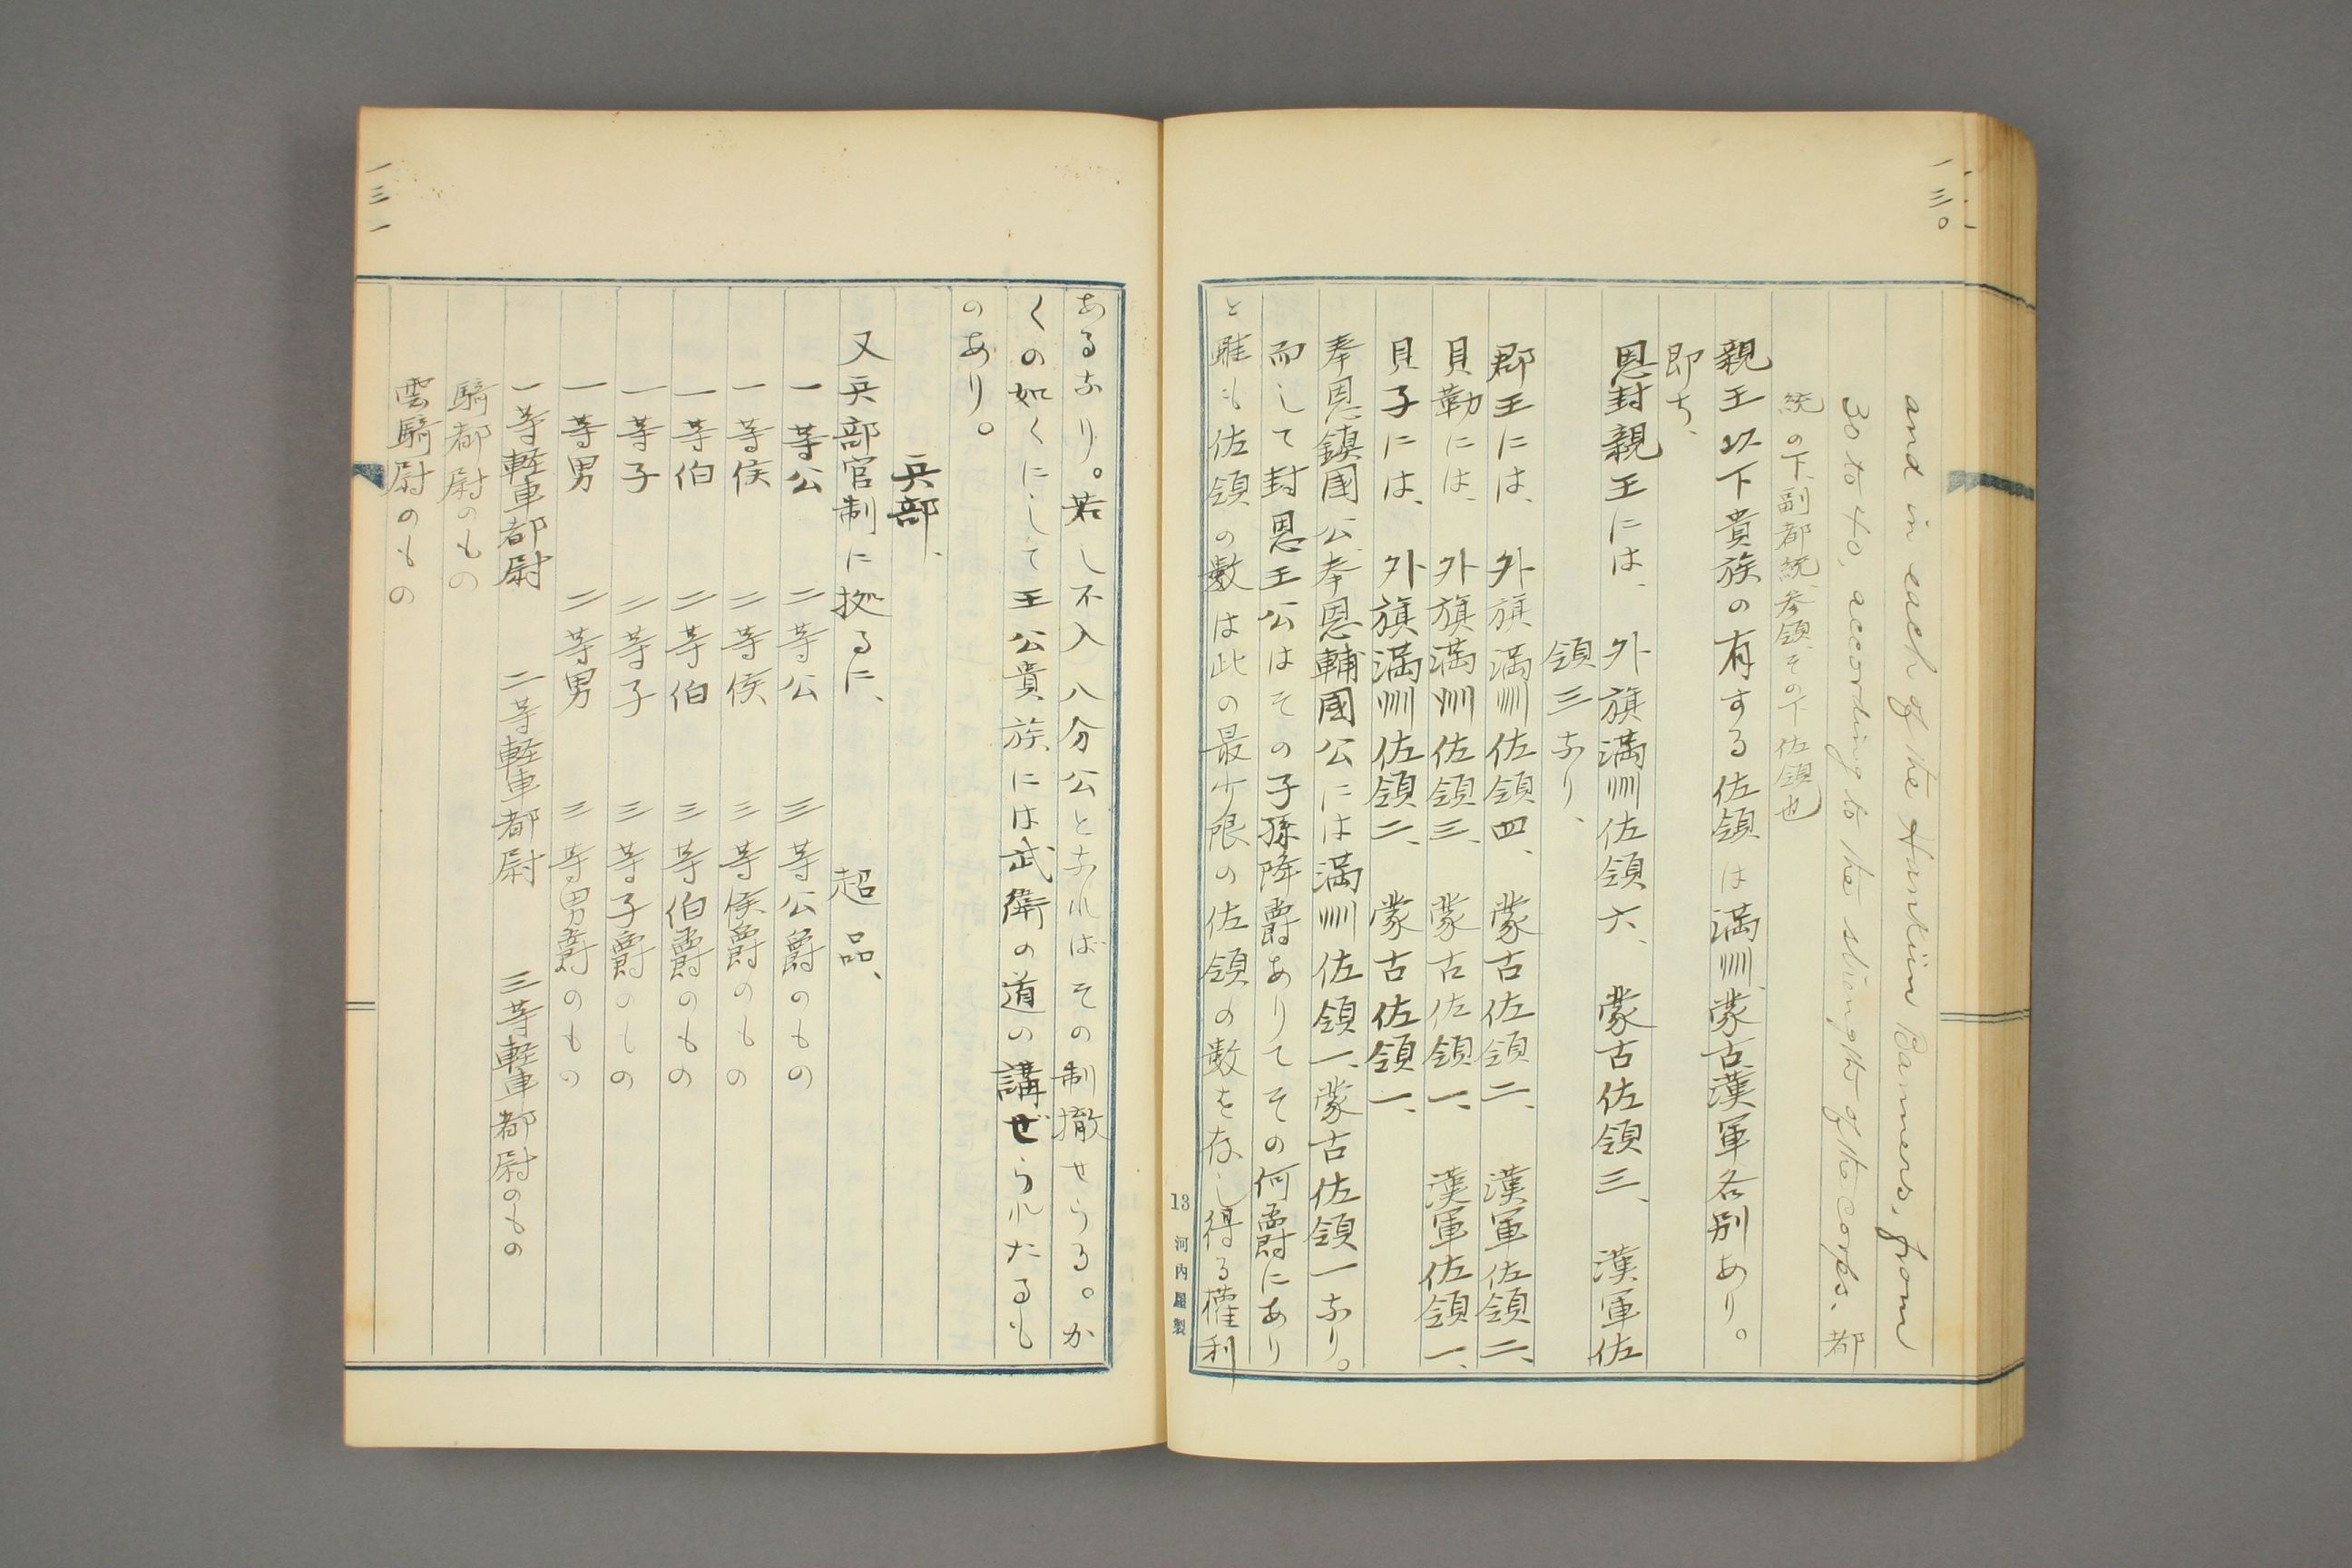 一三〇
and in each of the Hankiün Banners, from
30 to 40, according to the strength of the corps、都
統の下、副都統、参領、その下佐領也
親王以下貴族の有する佐領は満洲、蒙古、漢軍各別あり。
即ち、
恩封親王には、外旗満洲佐領六、蒙古佐領三、漢軍佐
領三なり、
郡王には、外旗満洲佐領四、蒙古佐領二、漢軍佐領二、
貝勒には、外旗満洲佐領三、蒙古佐領一、漢軍佐領一、
貝子には、外旗満洲佐領二、蒙古佐領一、
奉恩鎮國公、奉恩輔國公には満洲佐領一、蒙古佐領一なり。
而して封恩王公はその子孫降爵ありてその何爵にあり
と雖も佐領の數は此の最少限の佐領の数を存し得る權利
13 河内屋製
一三一
あるなり。若し不入八分公となればその制撤せらる。か
くの如くにして王公貴族には武衛の道の講ぜられたるも
のあり。
兵部、
又兵部官制に拠るに、超品、
一等公 二等公 三等公爵のもの
一等侯 二等侯 三等侯爵のもの
一等伯 二等伯 三等伯爵のもの
一等子 二等子 三等子爵のもの
一等男 二等男 三等男爵のもの
一等軽車都尉 二等軽車都尉 三等軽車都尉のもの
騎都尉のもの
雲騎尉のもの